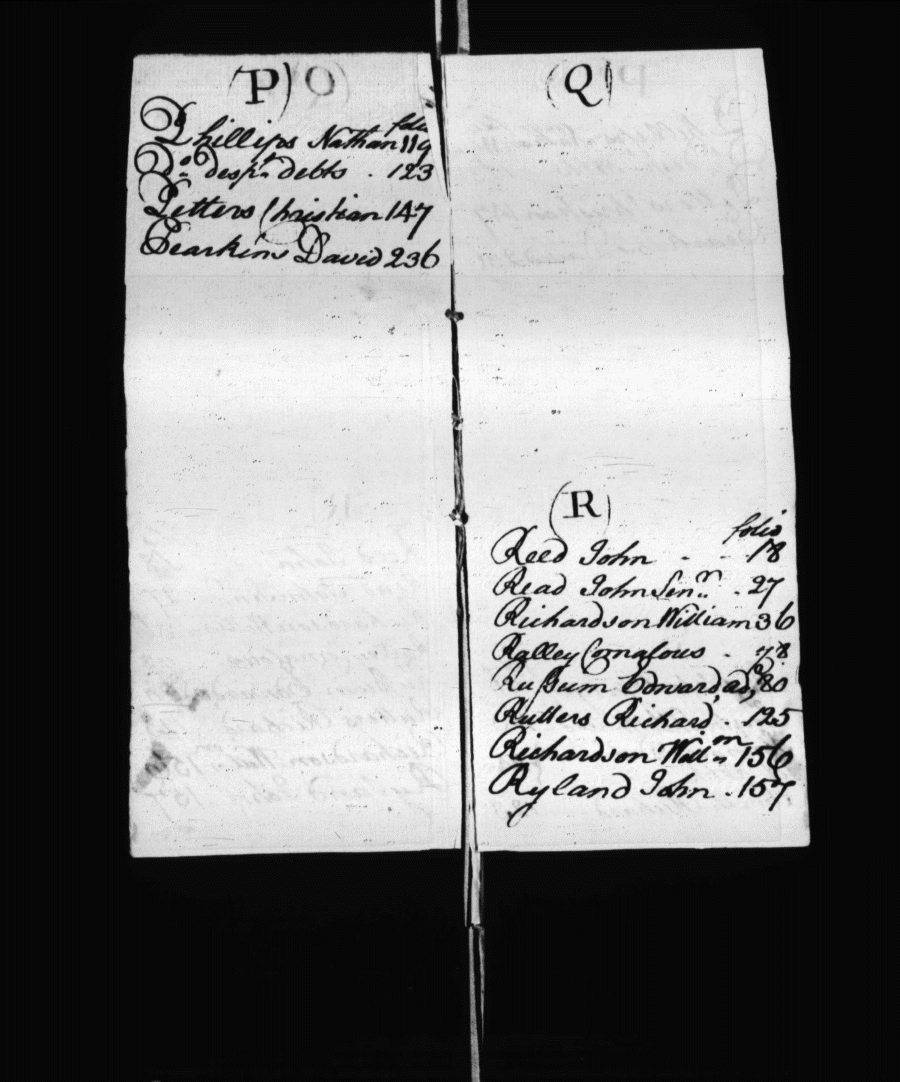 (P)
folio
Phillips Nathan 119
Do. desp.n debts . 123
Petters Christian 147
Pearkins David 236
(Q)
(R)
folio
Reed John - - 18
Read John Senr. . 27
Richardson William 36
Ralley Cornalous . 78
Rußum Edward, 80
Rutters Richard . 125
Richardson Willm. 156
Ryland John . 157